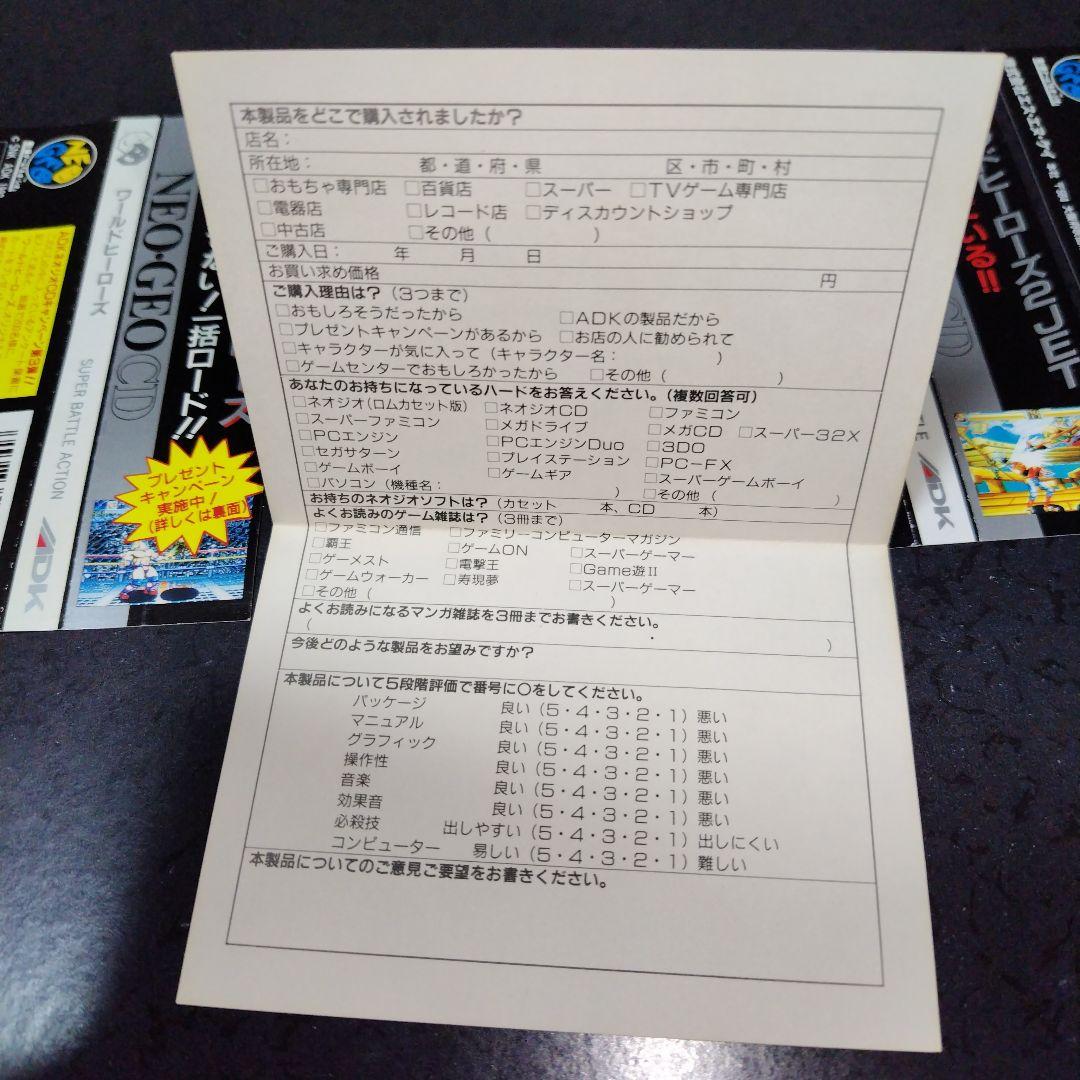 本製品をどこで購入されましたか？
店名：
所在地：　都・道・府・県　区・市・町・村
□おもちゃ専門店 □百貨店 □スーパー □TVゲーム専門店
□電器店 □レコード店 □ディスカウントショップ
□中古店 □その他（　）
ご購入日：　年　月　日
お買い求め価格　円
ご購入理由は？（3つまで）
□おもしろそうだったから □ADKの製品だから
□プレゼントキャンペーンがあるから □お店の人に勧められて
□キャラクターが気に入って（キャラクター名：　）
□ゲームセンターでおもしろかったから □その他（　）
あなたのお持ちになっているハードをお答えください。（複数回答可）
□ネオジオ（ロムカセット版） □ネオジオCD □ファミコン
□スーパーファミコン □メガドライブ □メガCD □スーパー32X
□PCエンジン □PCエンジンDuo □3DO
□セガサターン □プレイステーション □PC-FX
□ゲームボーイ □ゲームギア □スーパーゲームボーイ
□パソコン（機種名：　） □その他（　）
お持ちのネオジオソフトは？（カセット　本、CD　本）
よくお読みのゲーム雑誌は？（3冊まで）
□ファミコン通信 □ファミリーコンピューターマガジン
□覇王 □ゲームON □スーパーゲーマー
□ゲーメスト □電撃王 □Game遊II
□ゲームウォーカー □寿現夢 □スーパーゲーマー
□その他（　）
よくお読みになるマンガ雑誌を3冊までお書きください。
（　・　）
今後どのような製品をお望みですか？
本製品について5段階評価で番号に○をしてください。
パッケージ　良い（5・4・3・2・1）悪い
マニュアル　良い（5・4・3・2・1）悪い
グラフィック　良い（5・4・3・2・1）悪い
操作性　良い（5・4・3・2・1）悪い
音楽　良い（5・4・3・2・1）悪い
効果音　良い（5・4・3・2・1）悪い
必殺技　出しやすい（5・4・3・2・1）出しにくい
コンピューター　易しい（5・4・3・2・1）難しい
本製品についてのご意見ご要望をお書きください。
NEO GEO
ワールドヒーローズ
SUPER BATTLE ACTION
ADK
NEO・GEO CD
い！一括ロード！！
プレゼント
キャンペーン
実施中！
（詳しくは裏面）
ヒーローズ2 JET
いる!!
CD
ADK